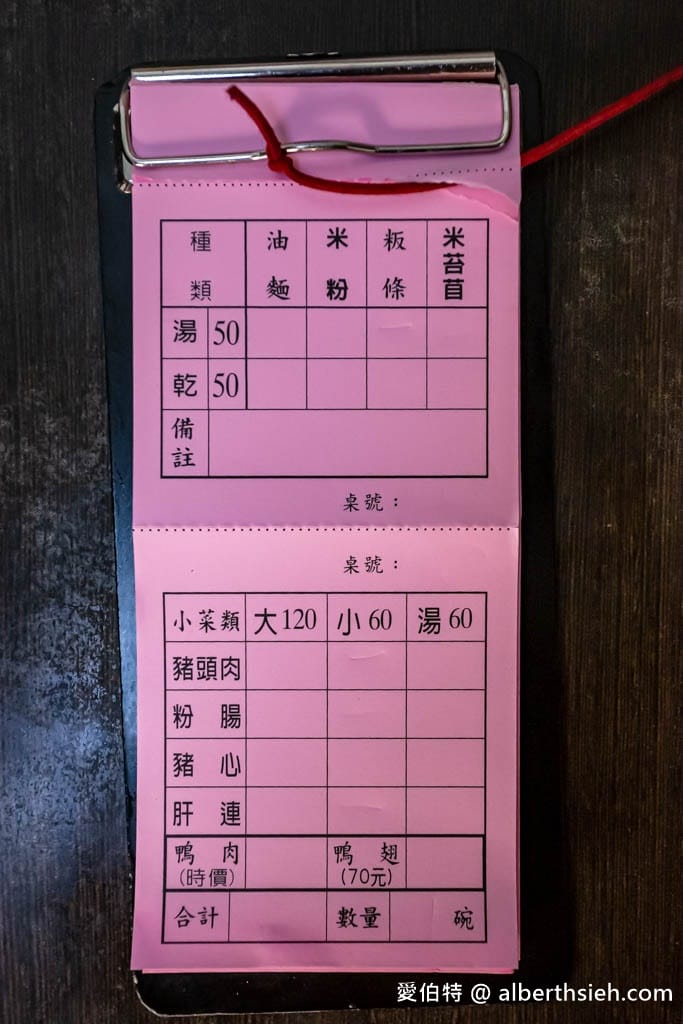 種類 油麵 米粉 粄條 米苔目
湯 50
乾 50
備註
桌號：
桌號：
小菜類 大120 小60 湯60
豬頭肉
粉腸
豬心
肝連
鴨肉 鴨翅
(時價) (70元)
合計 數量 碗
愛伯特 @ alberthsieh.com